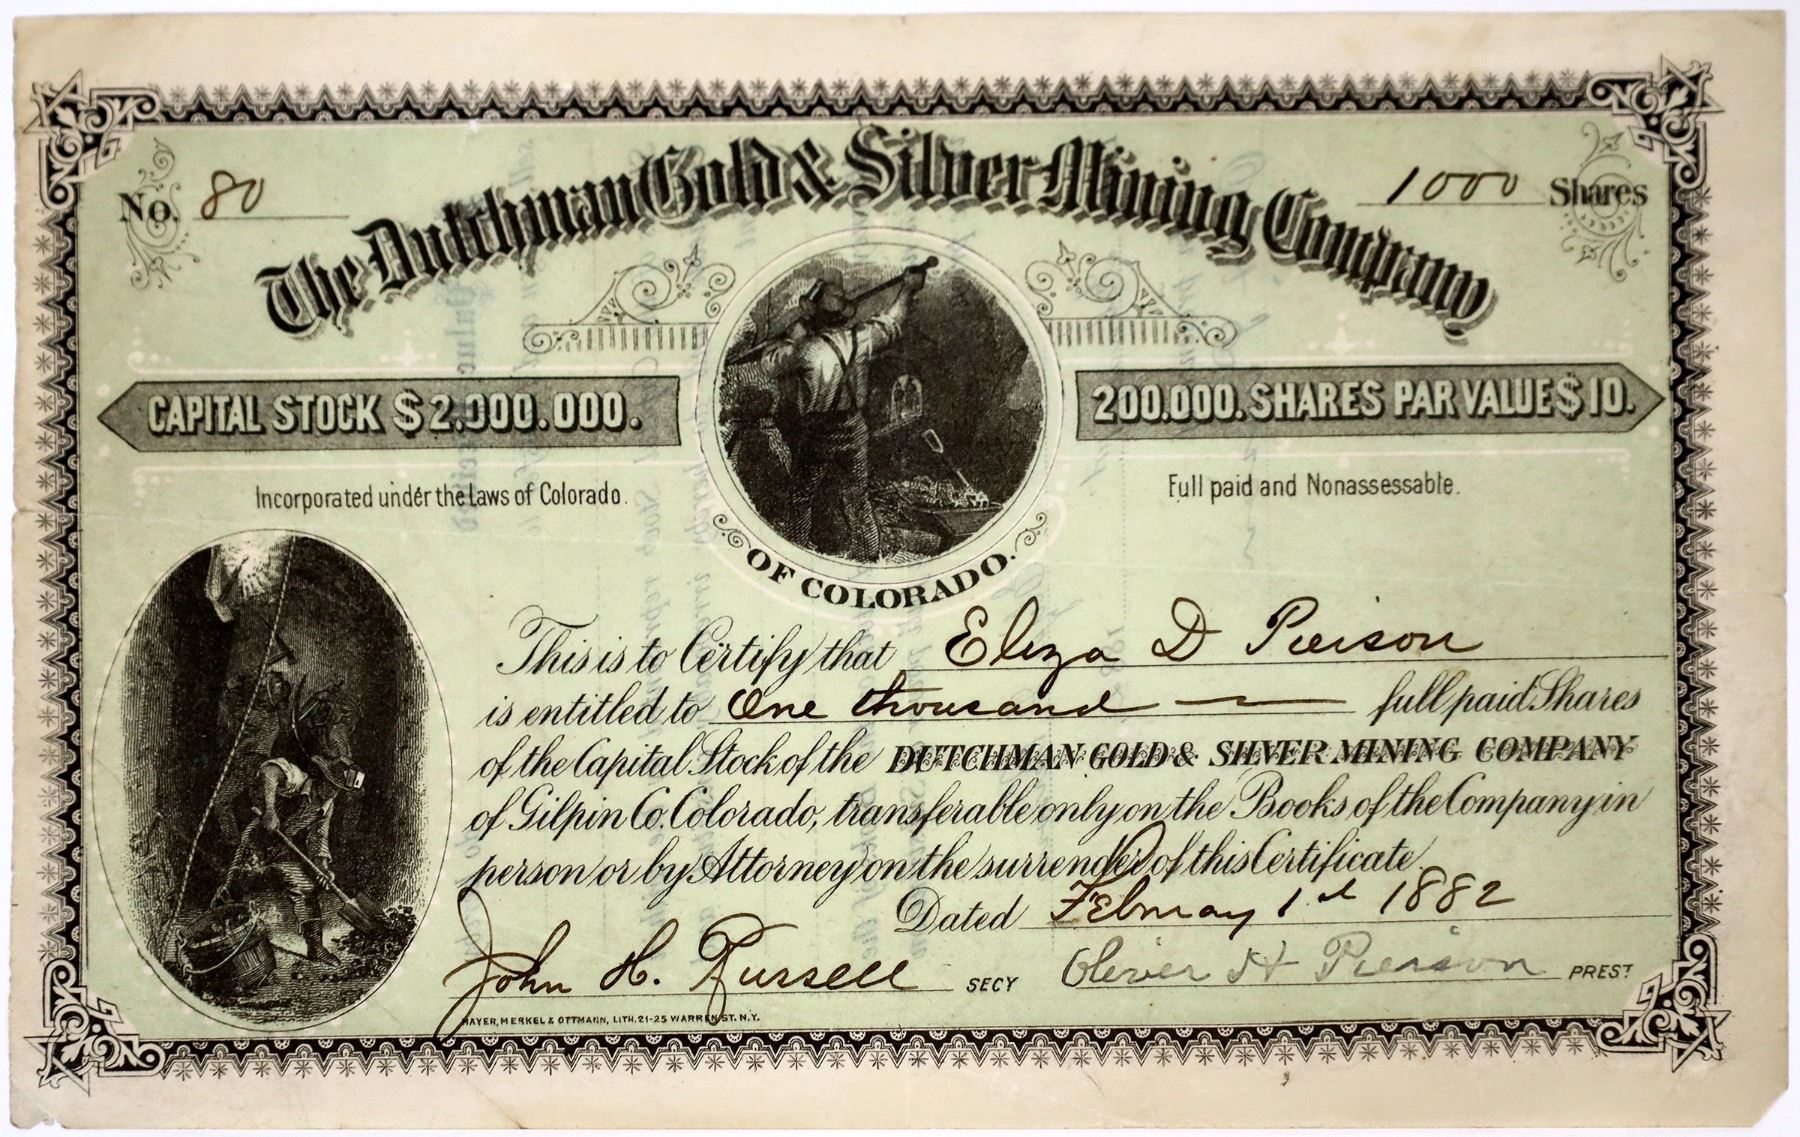 No. 80
The Dutchman Gold & Silver Mining Company
1000 Shares
CAPITAL STOCK $2.000.000.
200.000. SHARES PAR VALUE $10.
Incorporated under the Laws of Colorado.
Full paid and Nonassessable.
OF COLORADO.
This is to Certify that Eliza D Pierson
is entitled to One thousand full paid Shares
of the Capital Stock of the DUTCHMAN GOLD & SILVER MINING COMPANY
of Gilpin Co. Colorado, transferable only on the Books of the Company in
person or by Attorney on the surrender of this Certificate
Dated February 1st 1882
John H. Russell SECY Oliver H Pierson PREST
MAYER, MERKEL & OTTMANN, LITH. 21-25 WARREN ST. N.Y.